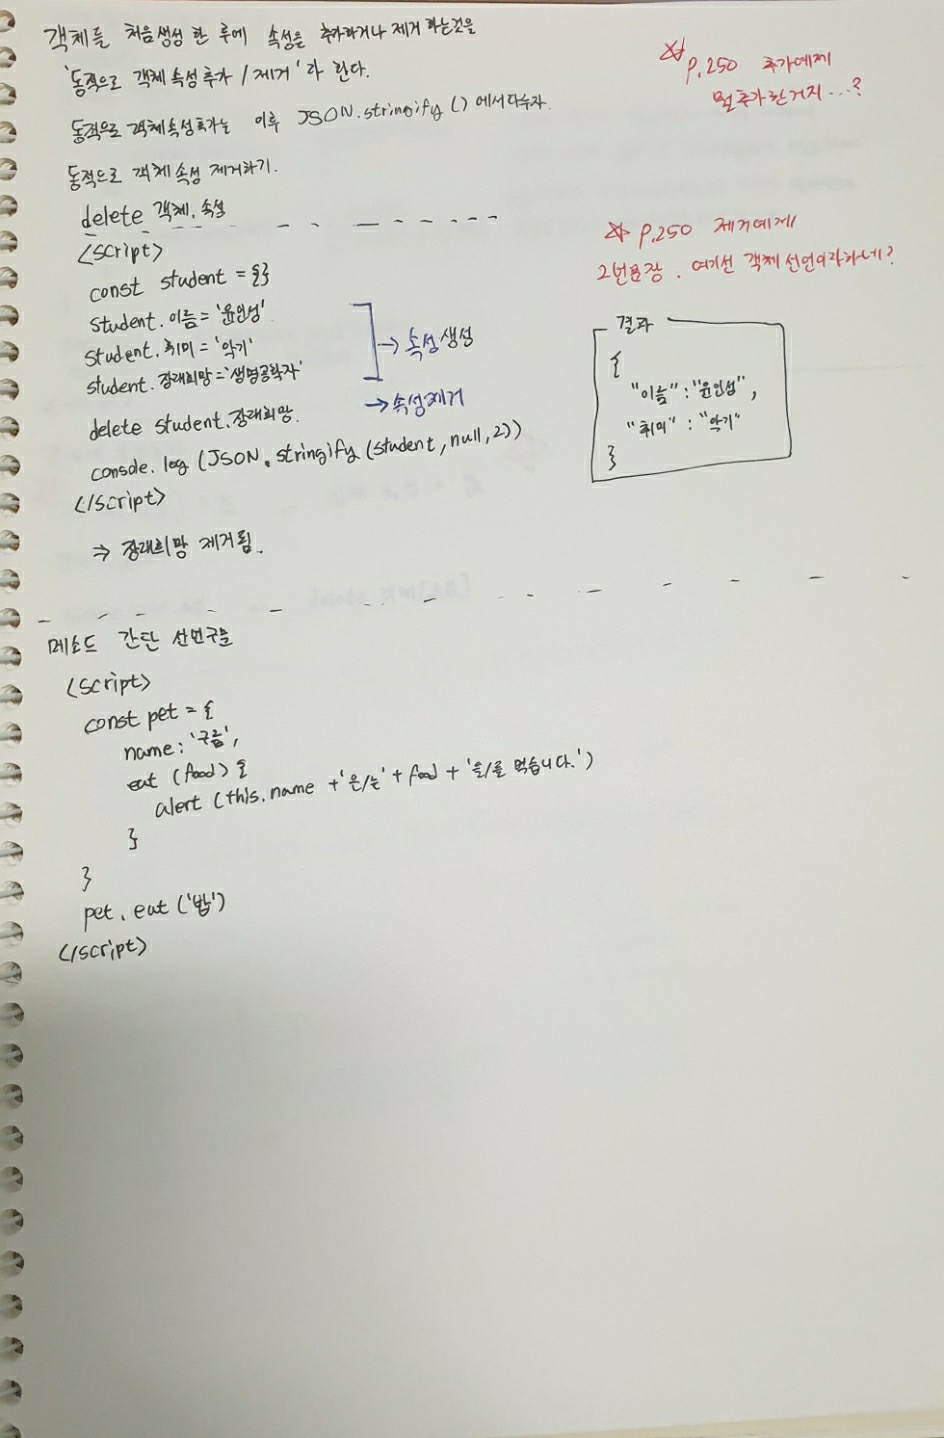 객체를 처음생성 한 후에 속성을 추가하거나 제거 하는것을
'동적으로 객체 속성 추가 / 제거' 라 한다.
동적으로 객체속성추가는 이후 JSON.stringify () 에서 다수자.
동적으로 객체 속성 제거하기.
delete 객체.속성
<script>
const student = {}
student.이름 = '윤인성'
student.취미 = '악기'
student.장래희망 = '생명공학자'
→ 속성 생성
delete student.장래희망.
→ 속성제거
console.log (JSON.stringify (student, null, 2))
</script>
⇒ 장래희망 제거됨.
☆ p.250 추가예제
뭘추가한거지...?
☆ p.250 제거예제
2번문장. 여기선 객체 선언이라하네?
결과
{
"이름" : "윤인성",
"취미" : "악기"
}
메소드 간단 선언구문
<script>
const pet = {
name: '구름',
eat (food) {
alert (this.name + '은/는' + food + '을/를 먹습니다.')
}
}
pet.eat ('밥')
</script>